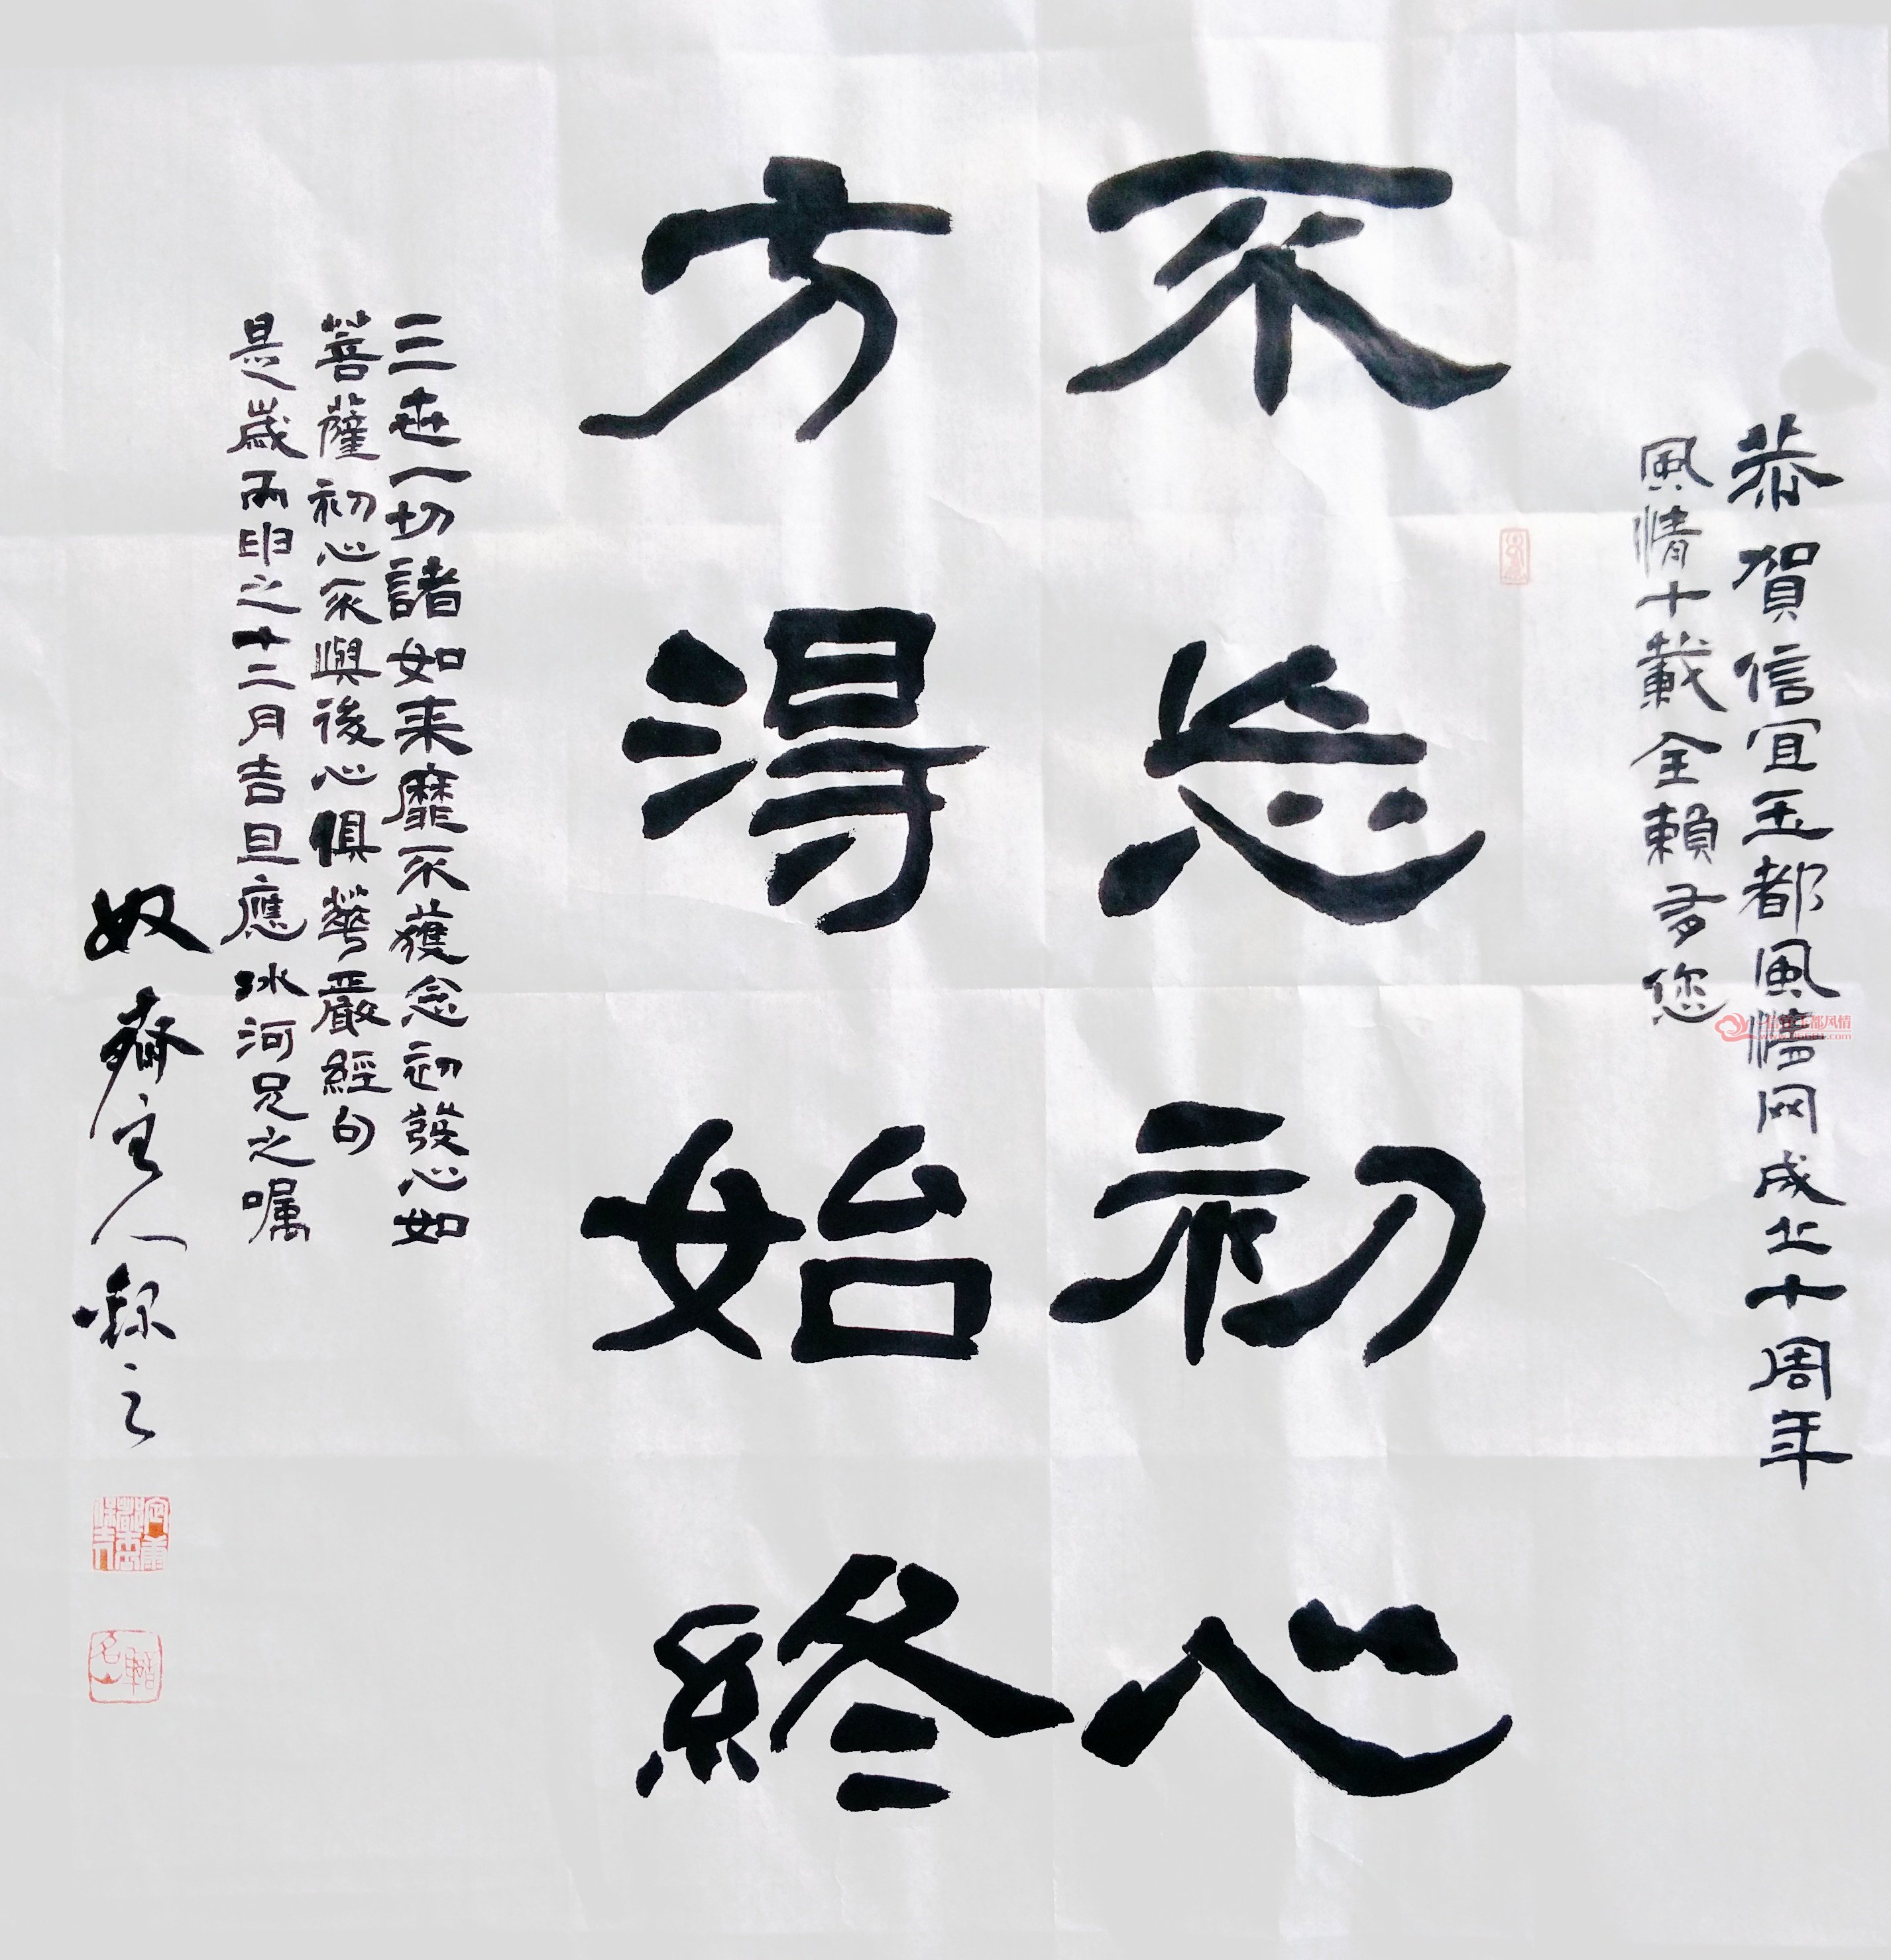 恭賀信宜玉都風情网成立十周年
風情十載全賴有您
不忘初心
方得始終
三世一切諸如来靡不獲念初發心如
菩薩初心不與後心俱華嚴經句
是歲丙申之十二月吉旦應冰河兄之嘱
奴齋主人
信宜玉都风情